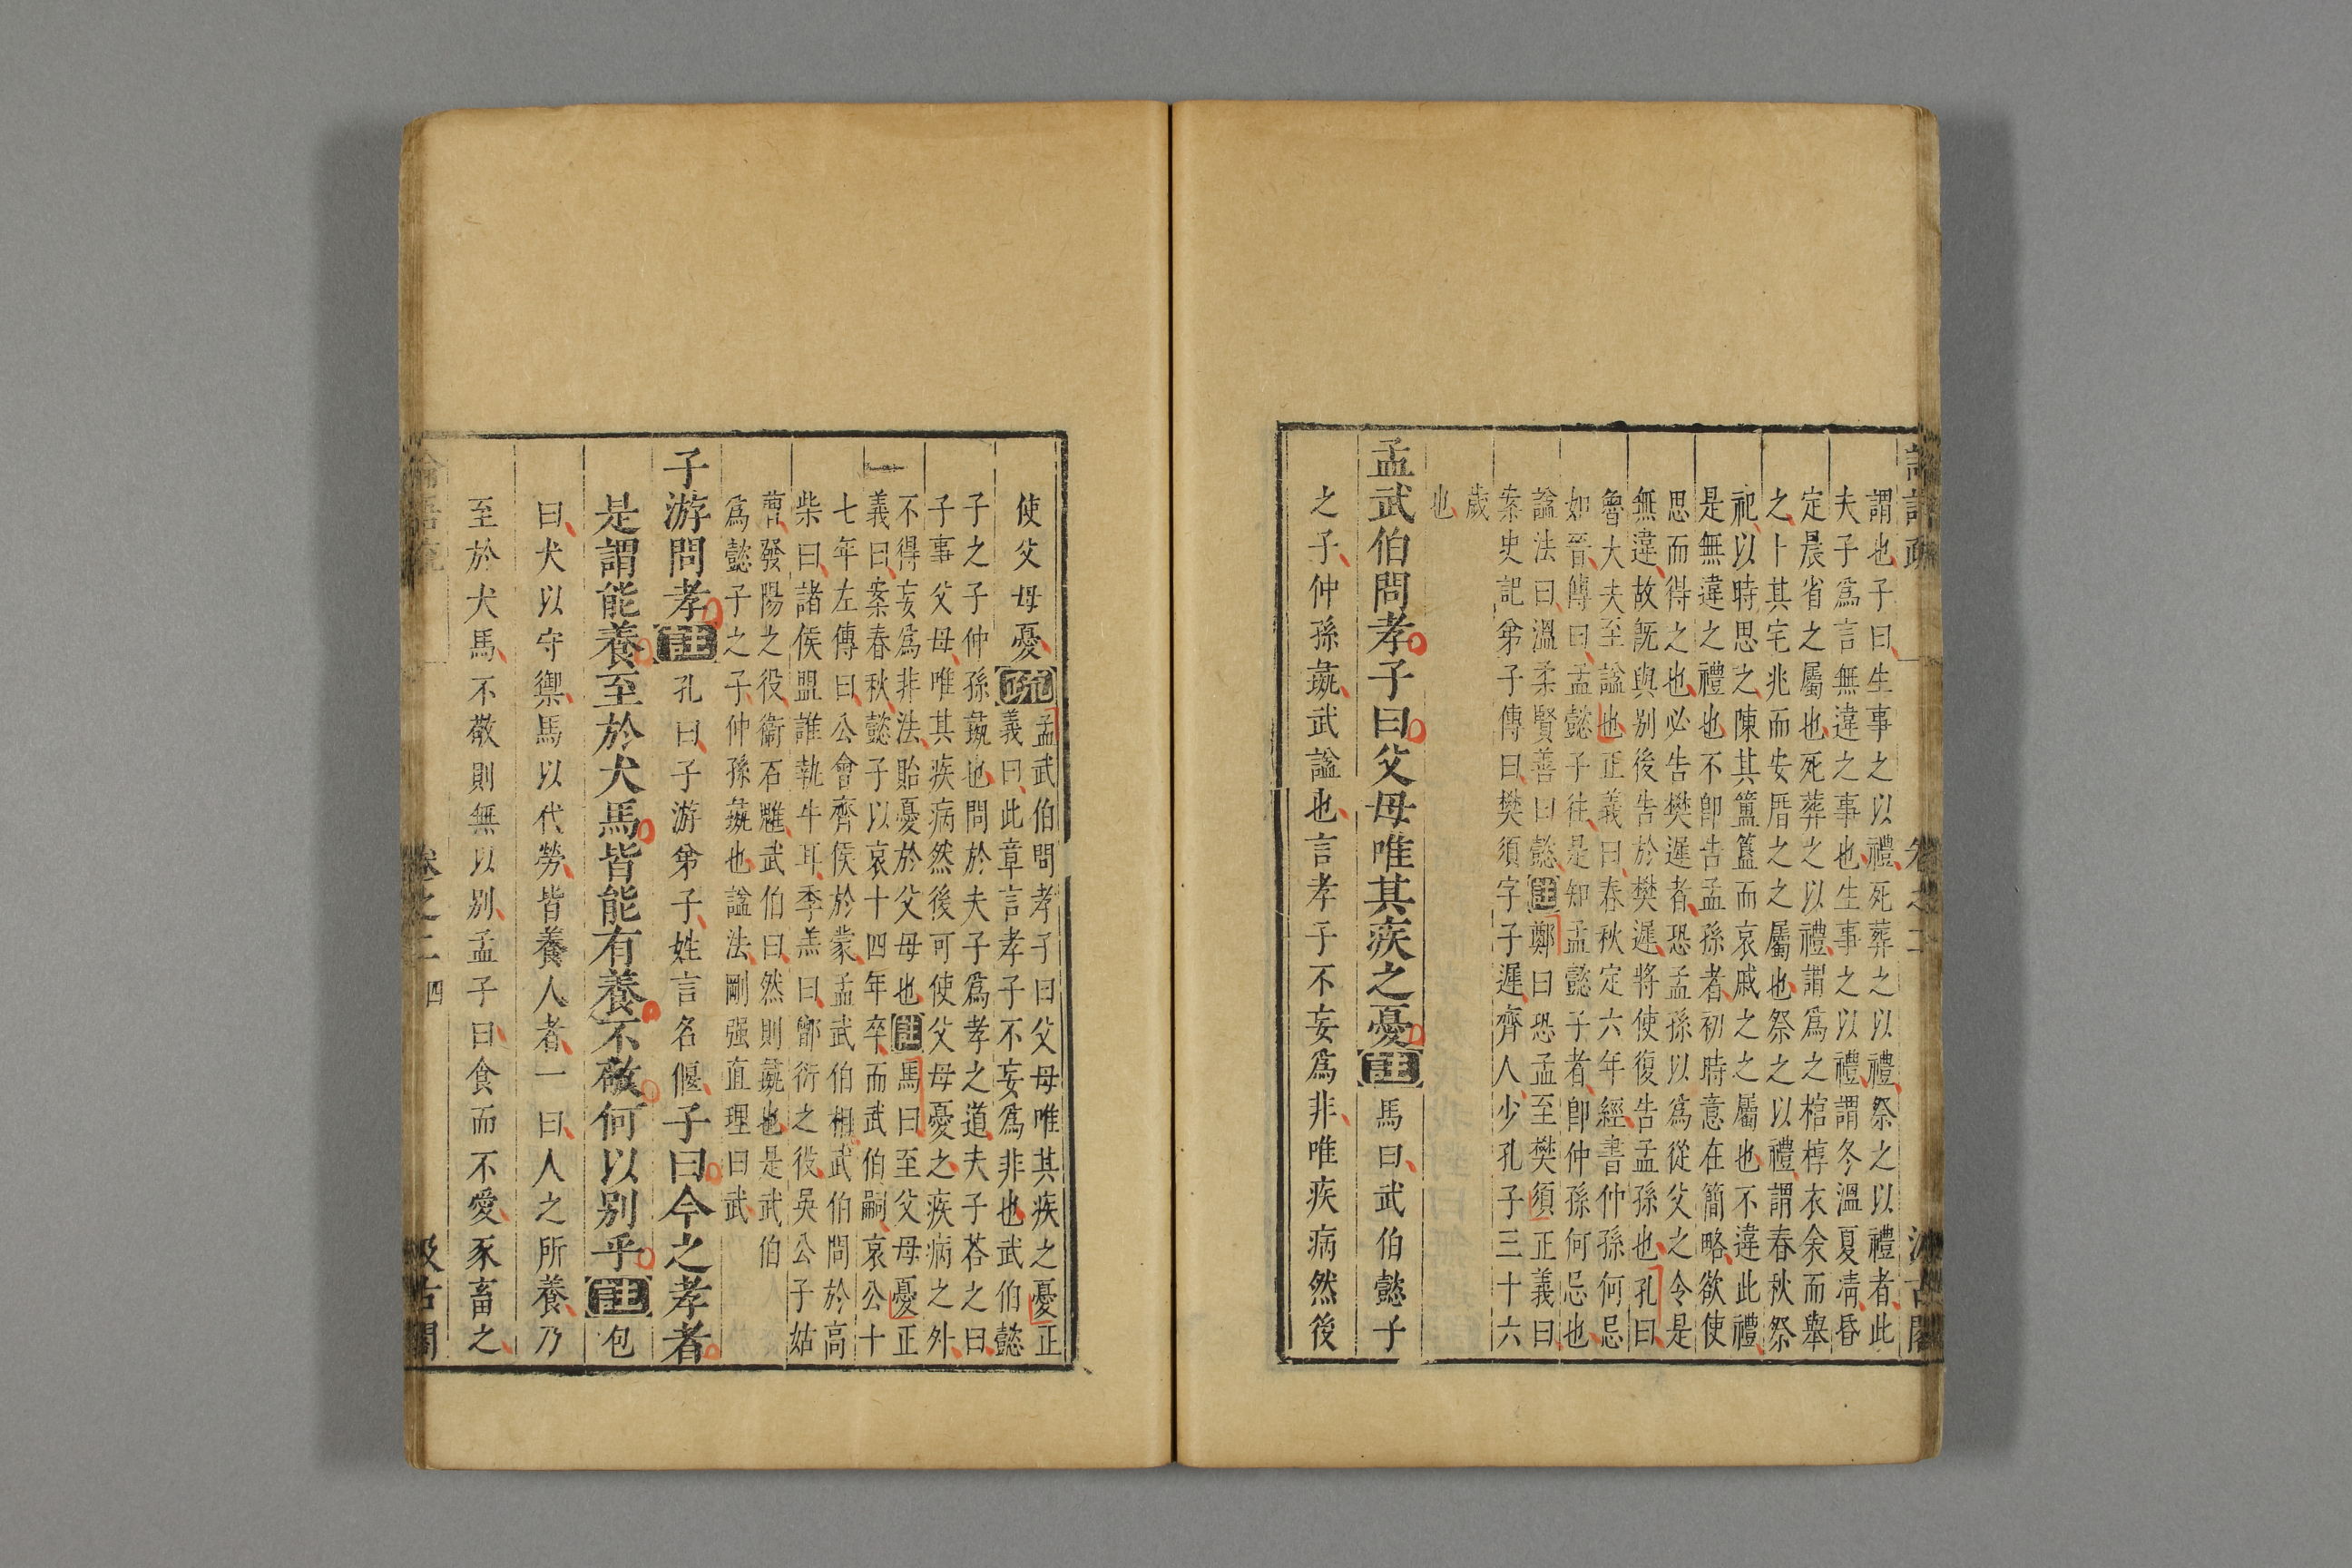 論語疏 卷之二 汲古閣
謂也子曰生事之以禮死葬之以禮祭之以禮者此
夫子爲言無違之事也生事之以禮謂冬溫夏凊昏
定晨省之屬也死葬之以禮謂爲之棺椁衣衾而舉
之卜其宅兆而安厝之之屬也祭之以禮謂春秋祭
祀以時思之陳其簠簋而哀戚之之屬也不違此禮
是無違之禮也不卽告孟孫者初時意在簡略欲使
思而得之也必告樊遲者恐孟孫以爲從父之令是
無違故旣與別後告於樊遲將使復告孟孫也孔曰
魯大夫至諡也正義曰春秋定六年經書仲孫何忌
如晉傳曰孟懿子往是知孟懿子者卽仲孫何忌也
諡法曰溫柔賢善曰懿註鄭曰恐孟至樊須正義曰
案史記弟子傳曰樊須字子遲齊人少孔子三十六
歲
也
孟武伯問孝子曰父母唯其疾之憂註馬曰武伯懿子
之子仲孫彘武諡也言孝子不妄爲非唯疾病然後
使父母憂疏孟武伯問孝子曰父母唯其疾之憂正
義曰此章言孝子不妄爲非也武伯懿
子之子仲孫彘也問於夫子爲孝之道夫子荅之曰
子事父母唯其疾病然後可使父母憂之疾病之外
不得妄爲非法貽憂於父母也註馬曰至父母憂正
義曰案春秋懿子以哀十四年卒而武伯嗣哀公十
七年左傳曰公會齊侯於蒙孟武伯相武伯問於高
柴曰諸侯盟誰執牛耳季羔曰鄫衍之役吳公子姑
曹發陽之役衞石魋武伯曰然則彘也是武伯
爲懿子之子仲孫彘也諡法剛强直理曰武
子游問孝註孔曰子游弟子姓言名偃子曰今之孝者
是謂能養至於犬馬皆能有養不敬何以別乎註包
曰犬以守禦馬以代勞皆養人者一曰人之所養乃
至於犬馬不敬則無以別孟子曰食而不愛豕畜之
論語疏 卷之二 四 汲古閣